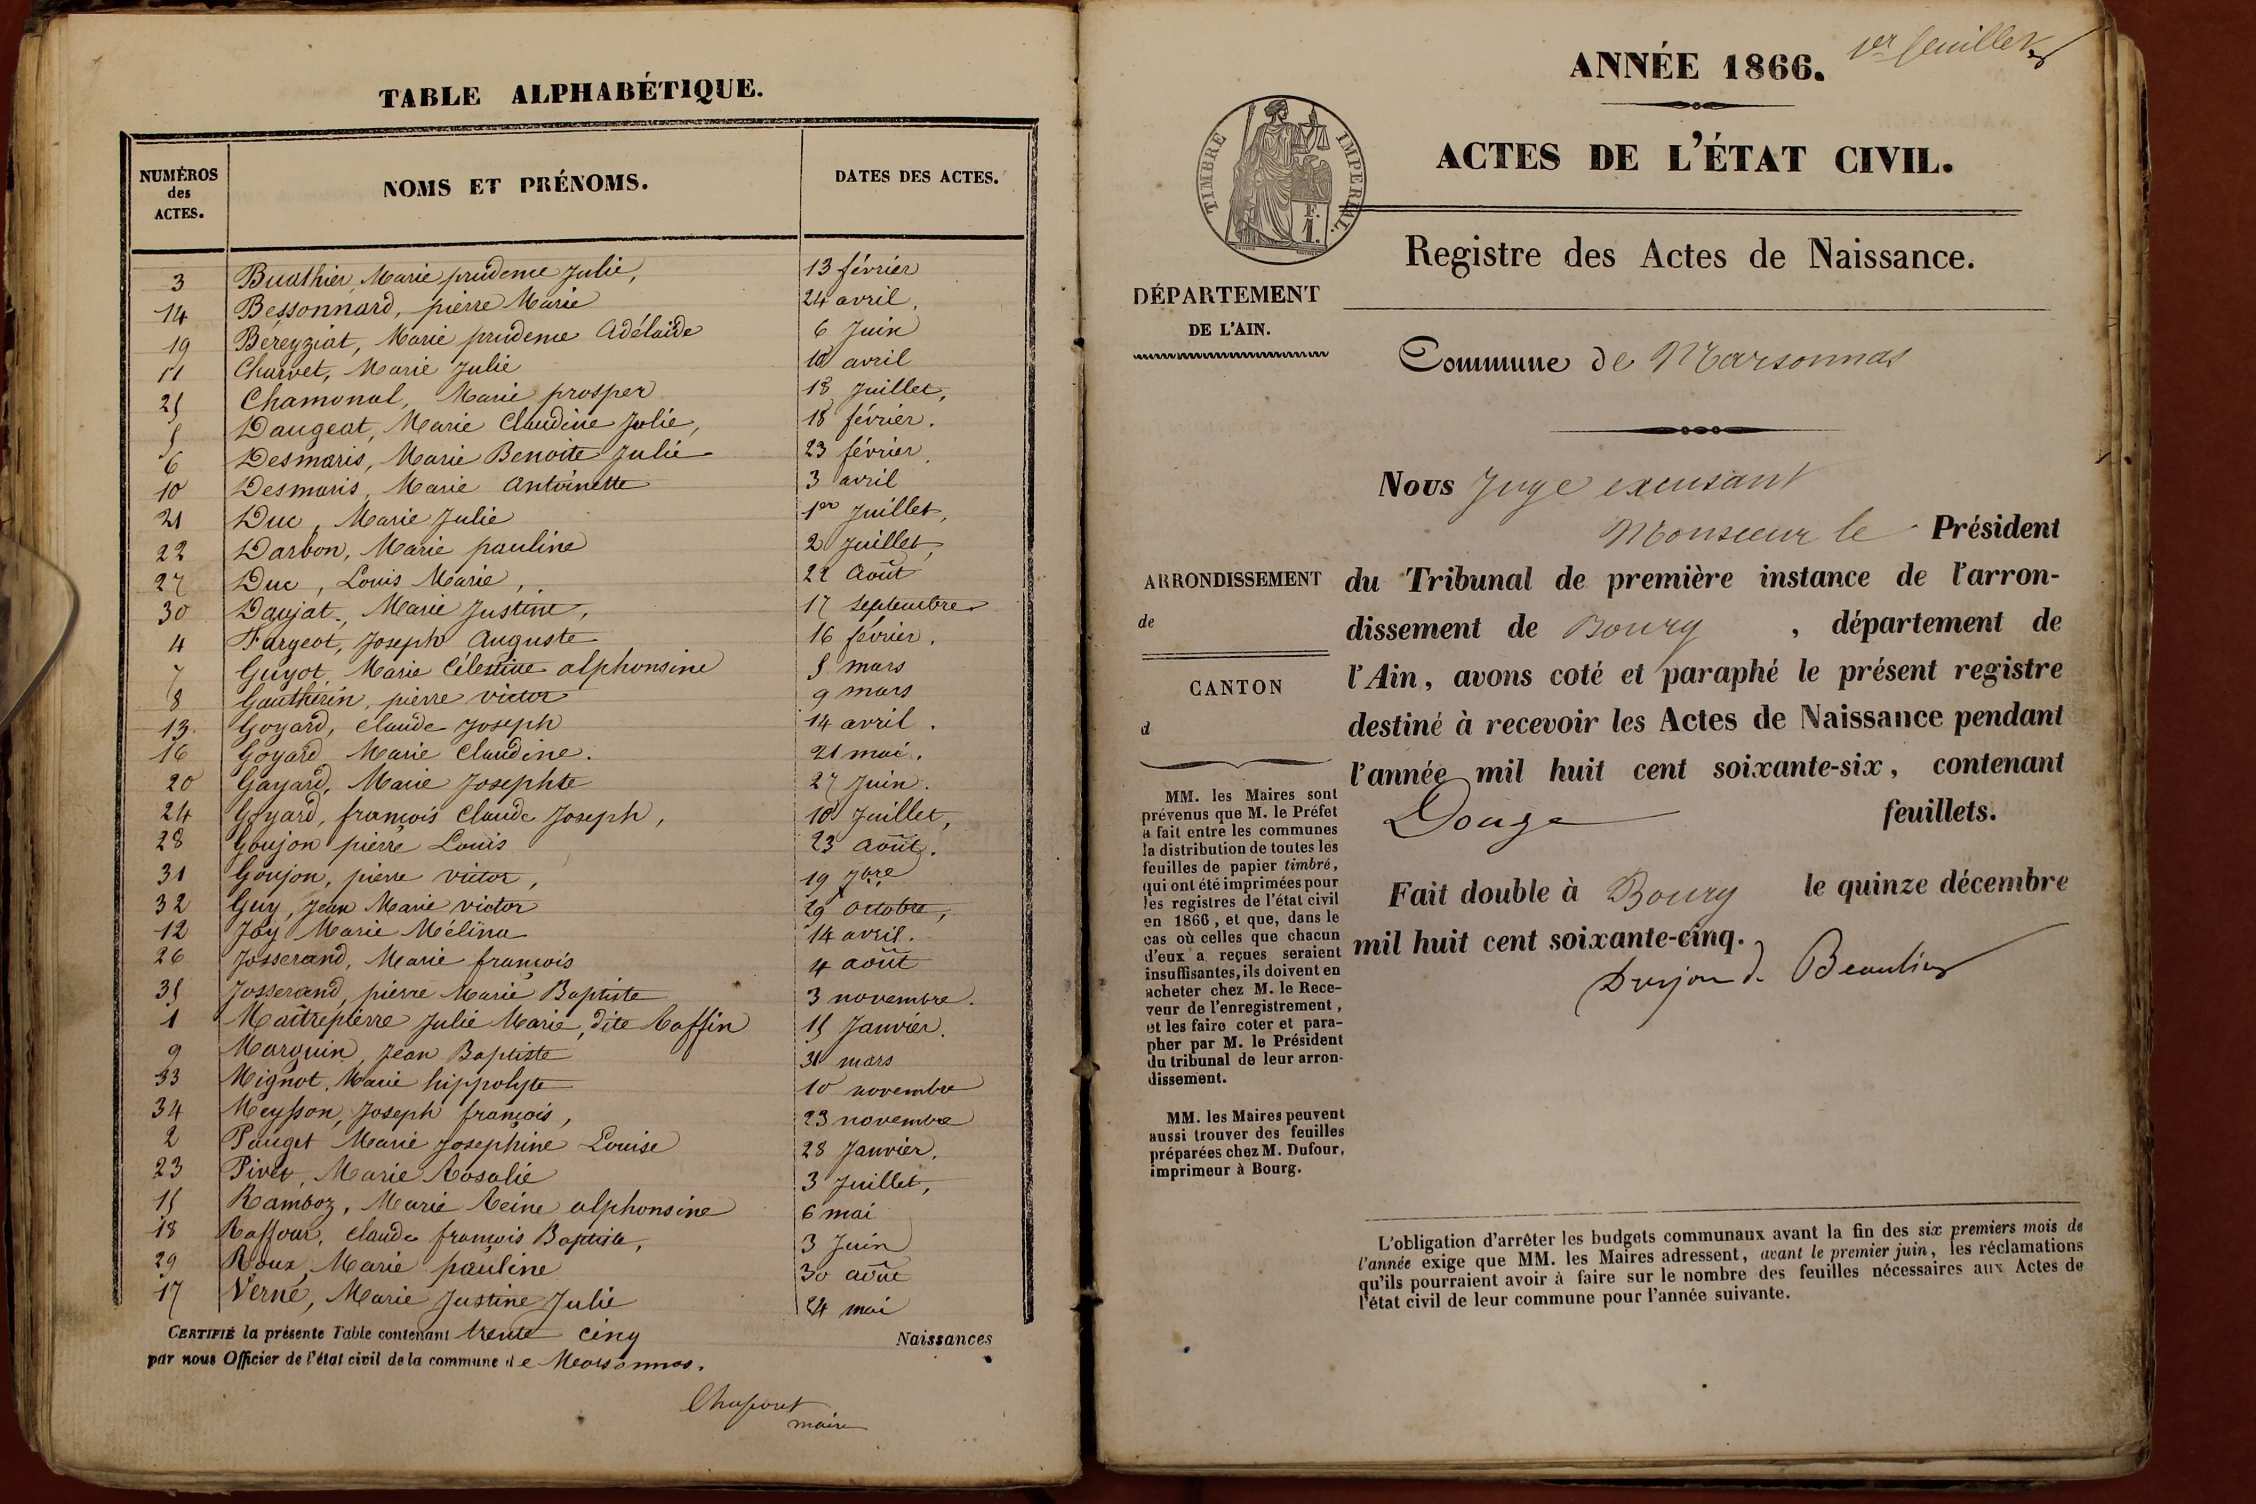 TABLE ALPHABÉTIQUE.
NUMÉROS des ACTES. NOMS ET PRÉNOMS. DATES DES ACTES.
3 Buathier, Marie prudence Julie, 13 février
14 Bessonnard, pierre Marie 24 avril,
19 Béreyziat, Marie prudence Adélaïde 6 Juin
11 Charvet, Marie Julie 10 avril
25 Chamonal, Marie prosper 18 Juillet,
5 Daugeat, Marie Claudine Julie, 18 février.
6 Desmaris, Marie Benoite Julie 23 février,
10 Desmaris, Marie Antoinette 3 avril
21 Duc, Marie Julie 1er Juillet,
22 Darbon, Marie pauline 2 Juillet,
27 Duc, Louis Marie, 22 Août
30 Daujat, Marie Justine, 17 septembre
4 Fargeot, Joseph Auguste 16 février.
7 Guyot, Marie Célestine alphonsine 5 mars
8 Gautherin, pierre victor 9 mars
13 Goyard, claude Joseph 14 avril.
16 Goyard Marie Claudine. 21 mai.
20 Gayard, Marie Josephte 27 Juin.
24 Goyard, françois Claude Joseph, 10 Juillet,
28 Goujon pierre Louis 23 août.
31 Goujon, pierre victor, 19 7bre
32 Guy, Jean Marie victor 29 octobre,
12 Joy Marie Mélina 14 avril.
26 Josserand, Marie françois 4 août
35 Josserand, pierre Marie Baptiste 3 novembre.
1 Maîtrepierre Julie Marie, dite Raffin 15 Janvier.
9 Marguin, Jean Baptiste 31 mars
33 Mignot, Marie hippolyte 10 novembre
34 Meysson, Joseph françois, 23 novembre
2 Pauget Marie Josephine Louise 28 Janvier.
23 Pivet, Marie Rosalie 3 Juillet,
15 Ramboz, Marie Reine alphonsine 6 mai
18 Raffour, claude françois Baptiste, 3 Juin
29 Roux, Marie pauline 30 août
17 Verne, Marie Justine Julie 24 mai
CERTIFIÉ la présente Table contenant trente cinq Naissances
par nous Officier de l'état civil de la commune de Marsonnas.
maire
1er feuillet
ANNÉE 1866.
TIMBRE IMPERIAL.
F.
1.
ACTES DE L'ÉTAT CIVIL.
Registre des Actes de Naissance.
DÉPARTEMENT
DE L'AIN.
Commune de Marsonnas
Nous Juge excusant
Monsieur le Président
ARRONDISSEMENT
de
CANTON
d
du Tribunal de première instance de l'arron-
dissement de Bourg, département de
l'Ain, avons coté et paraphé le présent registre
destiné à recevoir les Actes de Naissance pendant
l'année mil huit cent soixante-six, contenant
Douze feuillets.
Fait double à Bourg le quinze décembre
mil huit cent soixante-cinq.
Dujon d. Beaulieu
MM. les Maires sont
prévenus que M. le Préfet
a fait entre les communes
la distribution de toutes les
feuilles de papier timbré,
qui ont été imprimées pour
les registres de l'état civil
en 1866, et que, dans le
cas où celles que chacun
d'eux a reçues seraient
insuffisantes, ils doivent en
acheter chez M. le Rece-
veur de l'enregistrement,
et les faire coter et para-
pher par M. le Président
du tribunal de leur arron-
dissement.
MM. les Maires peuvent
aussi trouver des feuilles
préparées chez M. Dufour,
imprimeur à Bourg.
L'obligation d'arrêter les budgets communaux avant la fin des six premiers mois de
l'année exige que MM. les Maires adressent, avant le premier juin, les réclamations
qu'ils pourraient avoir à faire sur le nombre des feuilles nécessaires aux Actes de
l'état civil de leur commune pour l'année suivante.